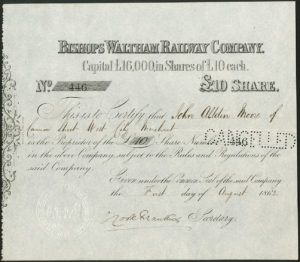 BISHOPS WALTHAM RAILWAY COMPANY.
Capital £16,000, in Shares of £10 each.
No. 446 £10 SHARE.
This is to Certify that John Alden Moore of
Cannon Street West City Merchant
is the Proprietor of the £10 Share Number 446
CANCELLED
in the above Company, subject to the Rules and Regulations of the
said Company.
Given under the Common Seal of the said Company
the First day of August 1862
Secretary.